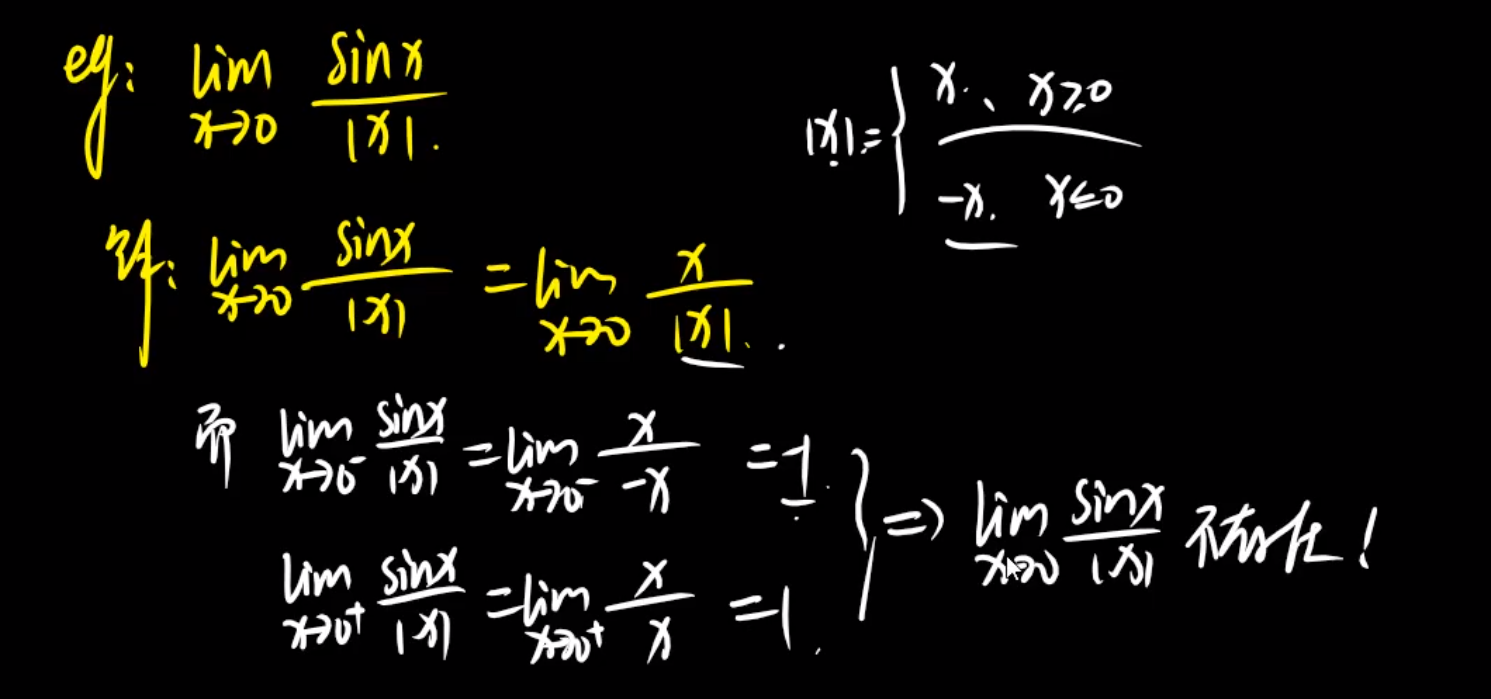 eg: lim x→0 sinx/|x|.
|x| = { x、 x≥0
-x. x≤0
解: lim x→0 sinx/|x| = lim x→0 x/|x|.
而 lim x→0⁻ sinx/|x| = lim x→0⁻ x/-x = -1.
lim x→0⁺ sinx/|x| = lim x→0⁺ x/x = 1.
} => lim x→0 sinx/|x| 不存在!